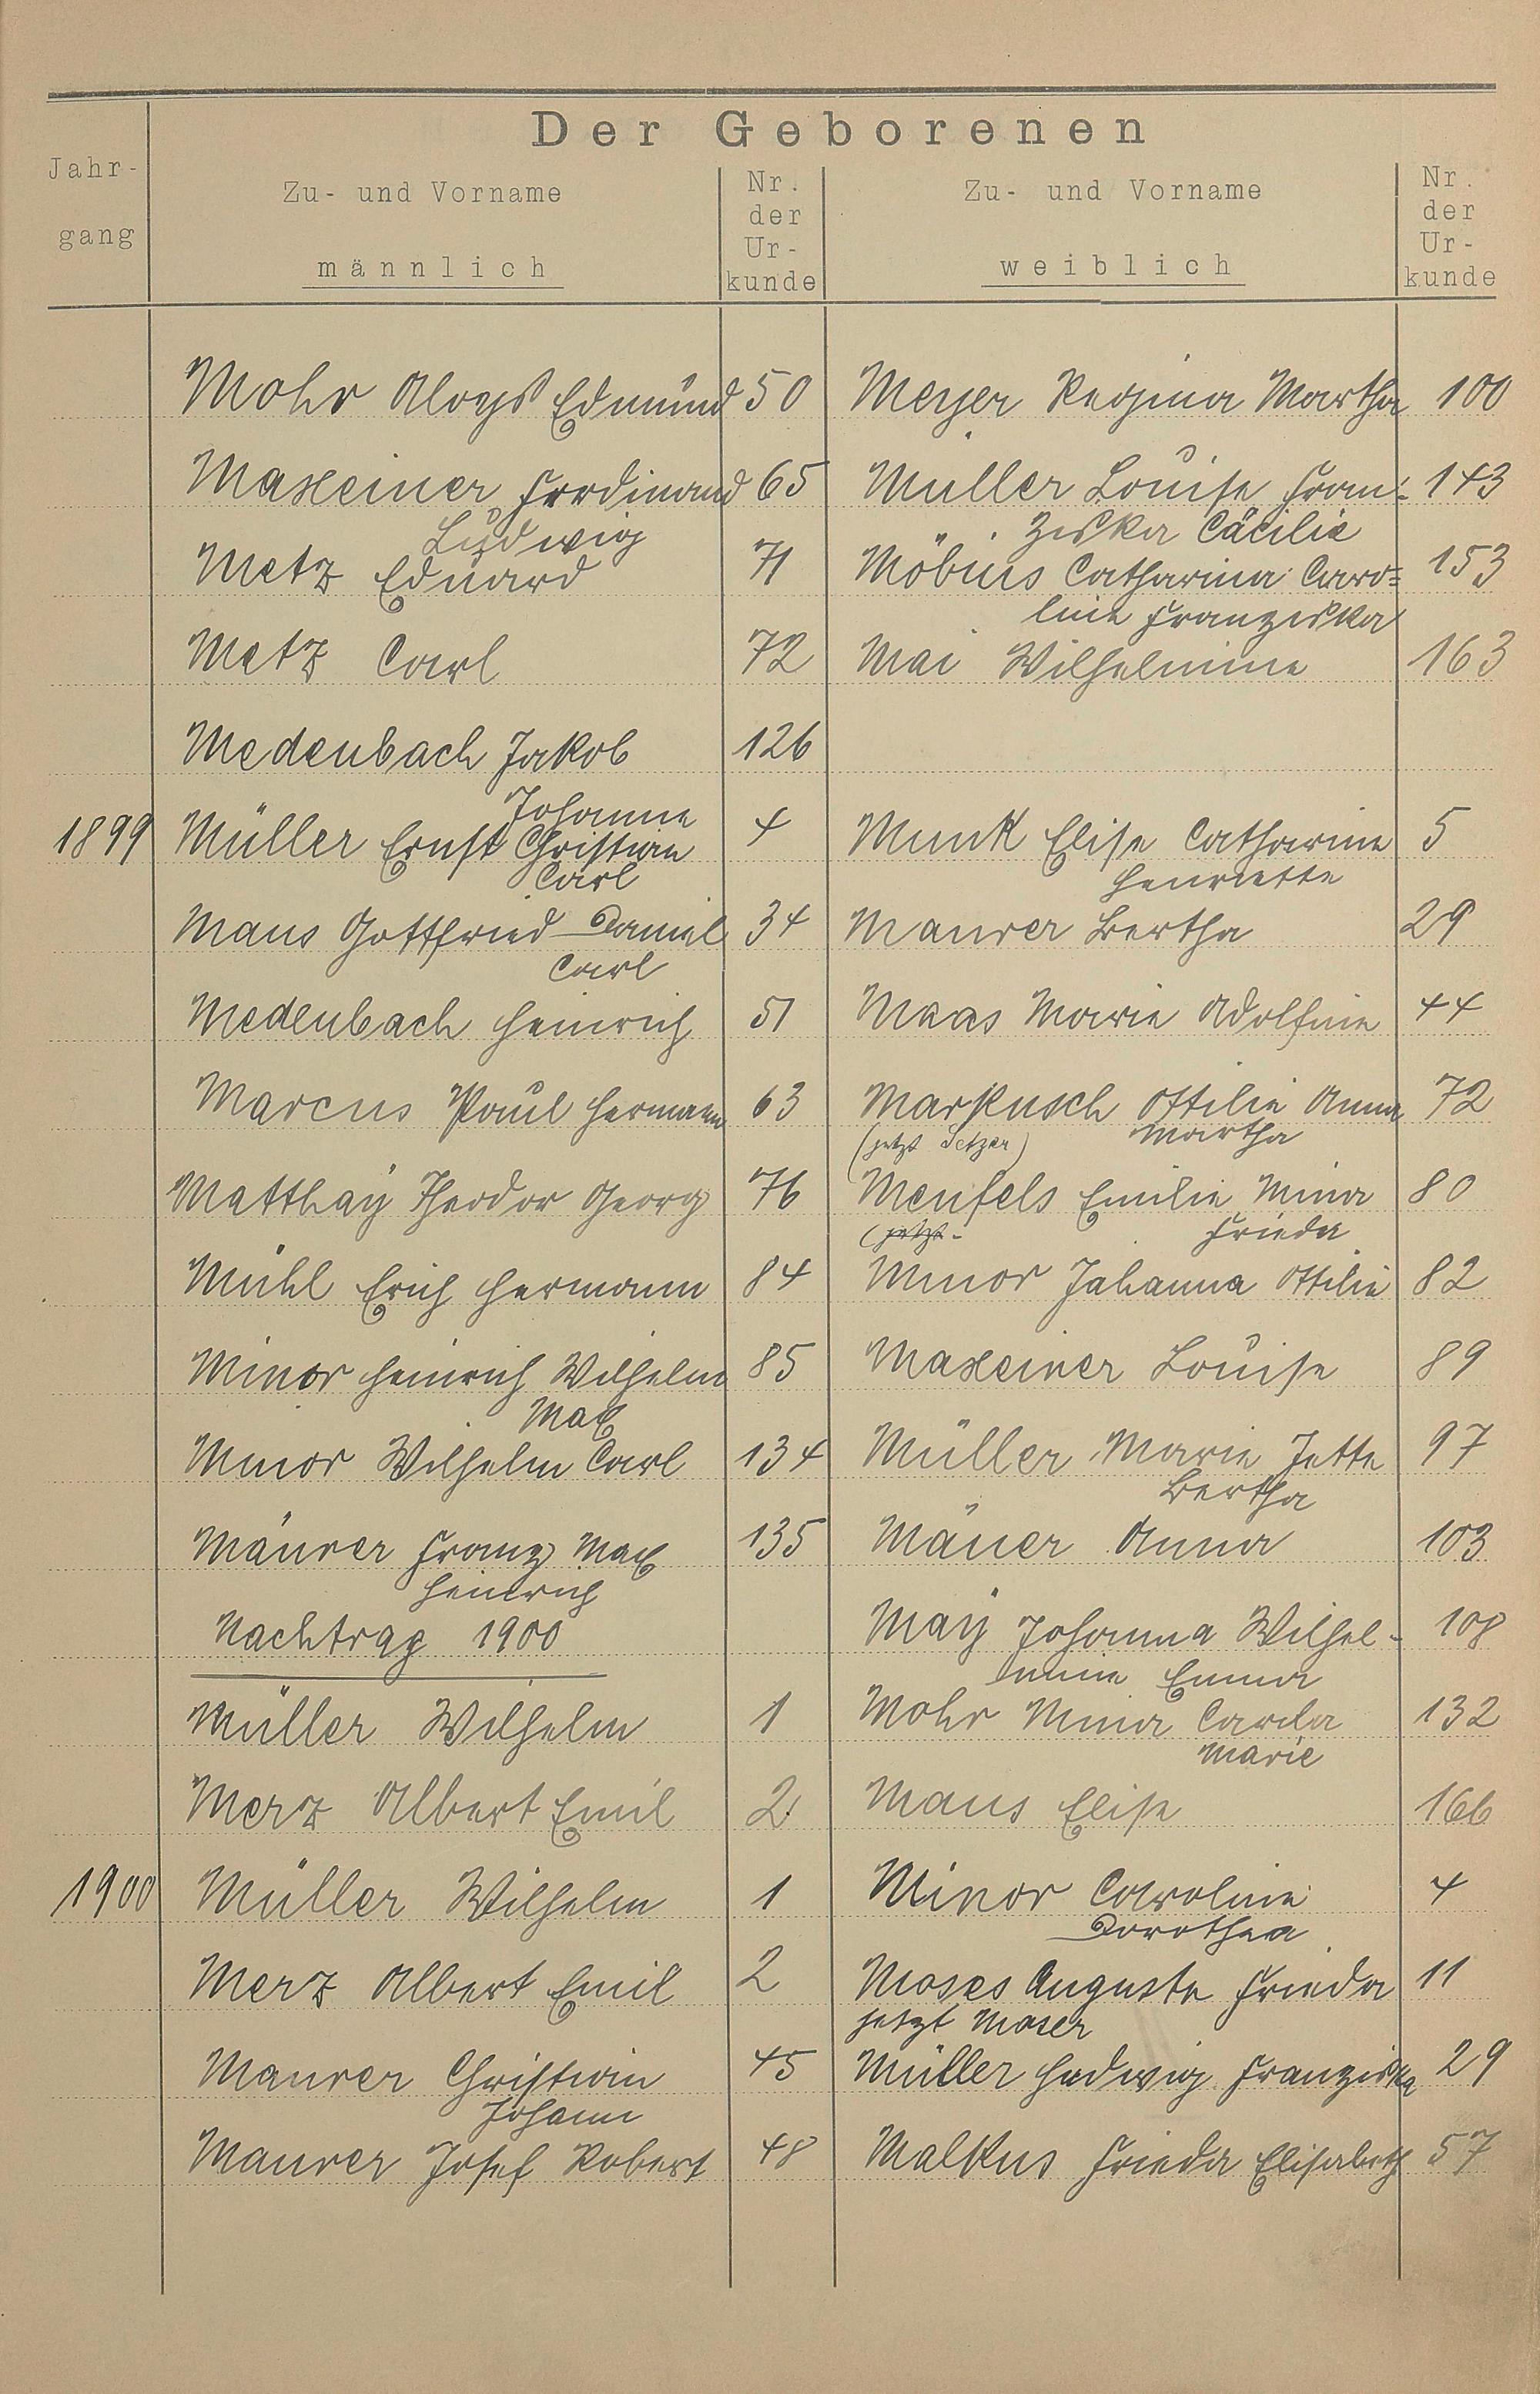 Der Geborenen
Jahr-
gang
Zu- und Vorname
männlich
Nr.
der
Ur-
kunde
Zu- und Vorname
weiblich
Nr.
der
Ur-
kunde
Mohr Aloys Edmund 50 Meyer Regina Martha 100
Maxeiner Ferdinand 65 Müller Louise Fran- 143
Ludwig ziska Cäcilie
Metz Eduard 71 Möbius Catharina Caro= 153
line Franziska
Metz Carl 72 Mai Wilhelmine 163
Medenbach Jakob 126
Johann
1899 Müller Ernst Christian 4 Munk Elise Catharine 5
Carl Henriette
Maus Gottfried Daniel 34 Maurer Bertha 29
Carl
Medenbach Heinrich 51 Maas Marie Adolfine 44
Marcus Paul Hermann 63 Markusch Ottilie Anna 72
(jetzt Setzer) Martha
Matthay Theodor Georg 76 Menfels Emilie Mina 80
(jetzt- Frieda
Mühl Erich Hermann 84 Minor Johanna Ottilie 82
Minor Heinrich Wilhelm 85 Maxeiner Louise 89
Max
Minor Wilhelm Carl 134 Müller Marie Jette 97
Bertha
Mäurer Franz Max 135 Mäuer Anna 103
Heinrich
Nachtrag 1900 May Johanna Wilhel- 108
mine Emma
Müller Wilhelm 1 Mohr Mina Carola 132
Marie
Merz Albert Emil 2 Maus Elise 166
1900 Müller Wilhelm 1 Minor Caroline 4
Dorothea
Merz Albert Emil 2 Moses Auguste Frieda 11
jetzt Moser
Maurer Christian 45 Müller Hedwig Franziska 29
Johann
Maurer Josef Robert 48 Malkus Frieda Elisabeth 57